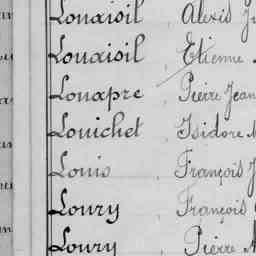 Louaisil Alexis
Louaisil Etienne
Louapre Pierre Jean
Louichet Isidore
Louis François J
Loury François
Loury Pierre